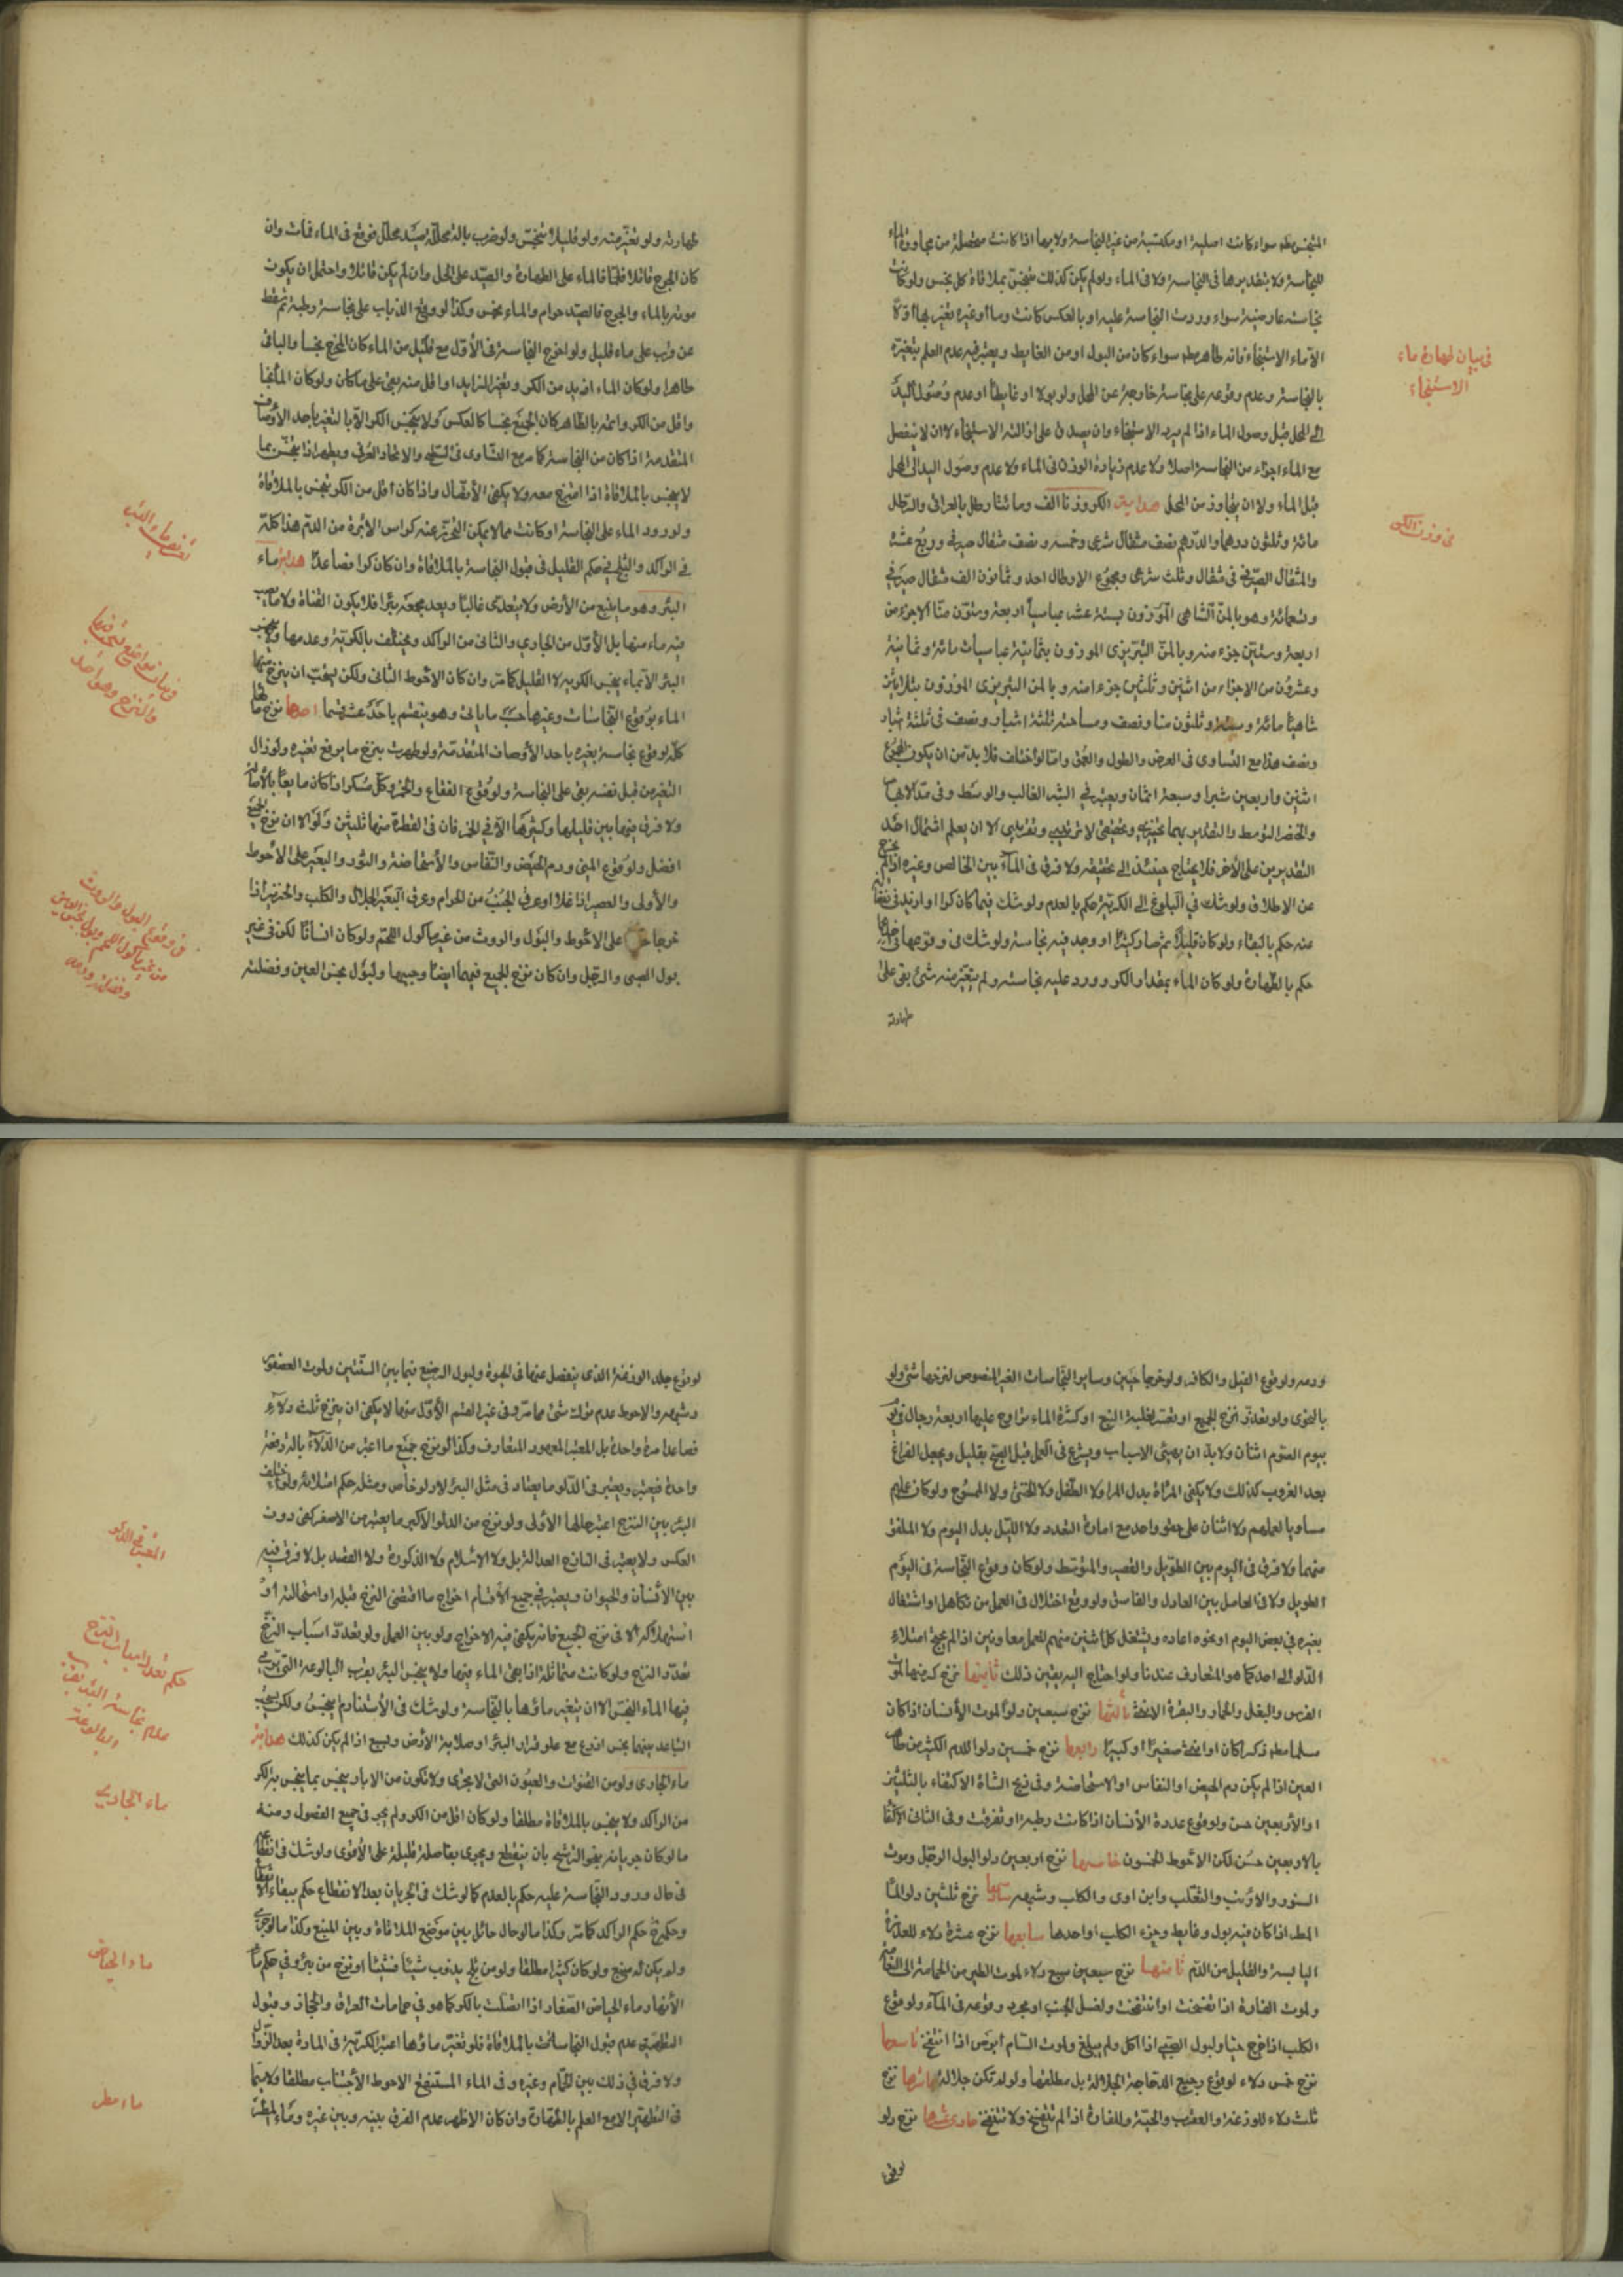 المتنجس مطلقا سواء كانت اصلية او مكتسبة من غير النجاسة ولا بها اذا كانت متحصلة من مجاورة الماء
للنجاسة ولا بتقديرها فى النجاسة ولا فى الماء ولو لم يكن كذلك تنجس بملاقاة كل نجس ولو كانت
نجاسته عارضية سواء وردت النجاسة عليه او بالعكس كانت وما أو غيره تغير بها أولا
الا ماء الاستنجاء فانه طاهر مطلقا سواء كان من البول او من الغايط ويعتبر فيه عدم العلم بتغيره
بالنجاسة وعدم وقوعه على نجاسة خارجة عن المحل ولو بولا او غايطا او عدم وصول اليد
الى المحل قبل وصول الماء اذا لم يرد الاستنجاء وان يصدق على ازالته الاستنجاء لا ان لا ينفصل
مع الماء اجزاء من النجاسة اصلا ولا عدم زيادة الوزن فى الماء ولا عدم وصول اليد الى المحل
قبل الماء ولا ان يتجاوز من المحل هداية الكر وزنا الف ومائتا رطل بالعراقى والرطل
مائة وثلثون درهما والدرهم نصف مثقال شرعى وخمسه ونصف مثقال صيرفى وربع عشره
والمثقال الصيرفى مثقال وثلث شرعى ومجموع الارطال احد وثمانون الف مثقال صيرفى
وتسعمائة وهو بالمن الشاهى الموزون بستة عشر عباسيا اربعة وستون منا الا جزء من
اربعة وستين جزء منه وبالمن التبريزى الموزون بثمانية عباسيات مائة وثمانية
وعشرون من الاجزاء من اثنين وثلثين جزءا منه وبالمن التبريزى الموزون بثلاثين
شاهيا مائة وستة وثلثون منا ونصف ومساحته ثلثة اشبار ونصف فى ثلثة اشبار
ونصف هذا مع التساوى فى العرض والطول والعمق واما لو اختلف فلا بد من ان يكون المجموع
اثنين واربعين شبرا وسبعة اثمان ويعتبر فى الشبر الغالب والوسط
والتقدير بهما تحقيقى لا تقريبى الا ان يعلم اشتمال احد
التقديرين على الاخر فلا يحتاج حينئذ الى تحقيقه ولا فرق فى الماء بين الخالص وغيره اذا لم يخرج
عن الاطلاق ولو شك فى البلوغ الى الكرية حكم بالعدم ولو شك فيما كان كرا او ازيد فى نقصانه
عنه حكم بالبقاء ولو كان قليلا ثم صار كثيرا او وجد فيه نجاسة ولو شك فى وقوعها
حكم بالطهارة ولو كان الماء بمقدار الكر وورد عليه نجاسة ولم يتغير منه شئ بقى على
طهارته
فى بيان طهارة ماء
الاستنجاء
فى وزن الكر
طهارته ولو تغير منه ولو قليلا تنجس ولو ضرب بالة محللة صيد محلل فوقع فى الماء فمات وان
كان الجرح قاتلا فلماء على الطهارة والصيد على الحل وان لم يكن قاتلا واحتمل ان يكون
موته بالماء والجرح فالصيد حرام والماء نجس وكذا لو وقع الذباب على نجاسة رطبة ثم سقط
عن قرب على ماء قليل ولو اخرج النجاسة فى الأول مع قليل من الماء كان المخرج نجسا والباقى
طاهرا ولو كان الماء ازيد من الكر وتغير الزايد او اقل منه بقى على ما كان ولو كان الماء نجسا
واقل من الكر واتمه بالطاهر كان الجميع نجسا كالعكس ولا ينجس الكر الا بالتغير باحد الأوصاف
المتقدمة اذا كان من النجاسة كما مر مع التساوى فى السطح والاتحاد العرفى ويطهر اذا تنجس بما
لا ينجس بالملاقاة اذا امتزج معه ولا يكفى الأتصال واذا كان اقل من الكر ينجس بالملاقاة
ولو ورود الماء على النجاسة او كانت مما لا يمكن التحرز عنه كراس الابرة من الدم هذا كله
فى الراكد والثلج فى حكم القليل فى قبول النجاسة بالملاقاة وان كان كرا فصاعدا هداية ماء
البئر وهو ما ينبع من الأرض ولا يتعدى غالبا ويعد مجمعه بئرا فلا يكون القناة ولا
فيه ماء منها بل الأول من الجارى والثانى من الراكد ويختلف بالكرية وعدمها ولا ينجس
البئر الا بماء ينجس الكر به لا القليل كما مر وان كان الأحوط الثانى ولكن يستحب ان ينزح منها
الماء بوقوع النجاسات وغيرها حسب ما ياتى وهو ينقسم باحد عشر قسما احدها نزح مائها
كله لوقوع نجاسة يغيره باحد الأوصاف المتقدمة ولو طهرت ينزح ما يرفع تغيره ولو زال
التغير من قبل نفسه بقى على النجاسة ولوقوع الفقاع والخمر وكل مسكر اذا كان مايعا بالأصالة
ولا فرق فيها بين قليلها وكثيرها الا فى الخمر فان فى القطرة منها ثلثين دلوا الا ان نزح الجميع
افضل ولوقوع المنى ودم الحيض والنفاس والأستحاضة والثور والبعير على الأحوط
والأولى والعصير اذا غلا او عرق الجنب من الحرام وعرق البعير الجلال والكلب والخنزير اذا
خرجا على الاحوط والبول والروث من غير ماكول اللحم ولو كان انسانا لكن فى غير
بول الصبى والرجل وان كان نزح الجميع فيهما ايضا وجيها ولبول نجس العين وفضلته
فى وقوع البول والروث
من غير ماكول اللحم وبول نجس العين
وفضلته ودمه
ودمه ولوقوع الفيل والكافر ولو خرجا حيين وساير النجاسات الغير المنصوص لنزحها شئ ولو
بالقوى ولو تعذر نزح الجميع او تعسر لغلبة النبع او كثرة الماء تراوح عليها اربعة رجال
بيوم الصوم اثنان ولا بد ان يهيئ الاسباب ويشرع فى العمل قبل الصبح بقليل ويجعل الفراغ
بعد الغروب كذلك ولا يكفى المرأة بدل المرء ولا الطفل ولا الخنثى ولا الممسوح ولو كان عملهم
مساويا لعملهم ولا اثنان على نحو واحد مع امارة التعدد ولا الليل بدل اليوم ولا الملفق
منهما ولا فرق فى اليوم بين الطويل والقصير والمتوسط ولو كان وقوع النجاسة فى اليوم
الطويل ولا فى العامل بين العادل والفاسق ولو وقع اختلال فى العمل من تكاهل او اشتغال
بغيره فى بعض اليوم او نحوه اعاده ويشتغل كل اثنين منهم للعمل معا وبين اذا لم يحتج امتلاء
الدلو الى احد كما هو المتعارف عندنا ولو احتاج اليه يتعين ذلك ثانيها نزح كر منها لموت
الفرس والبغل والحمار والبقرة الاهلية ثالثها نزح سبعين دلوا لموت الأنسان اذا كان
مسلما مطلقا ذكرا كان او انثى صغيرا او كبيرا رابعها نزح خمسين دلوا للدم الكثير من طاهر
العين اذا لم يكن دم الحيض او النفاس او الاستحاضة وفى ذبح الشاة الاكتفاء بالثلثين
او الأربعين حسن ولوقوع عذرة الأنسان اذا كانت رطبة او تفرقت وفى الثانى الاكتفاء
بالاربعين حسن لكن الأحوط الخمسون خامسها نزح اربعين دلوا لبول الرجل وموت
السنور والارنب والثعلب وابن اوى والكلب وشبهه سادسها نزح ثلثين دلوا لماء
المطر اذا كان فيه بول وغايط وخرء الكلب او احدها سابعها نزح عشرة دلاء للعذرة
اليابسة والقليل من الدم ثامنها نزح سبعين سبع دلاء لموت الطير من الحمامة الى النعامة
ولموت الفارة اذا تفسخت او انتفخت ولغسل الجنب او مجرد وقوعه فى الماء ولوقوع
الكلب اذا خرج حيا ولبول الصبى اذا اكل ولم يبلغ ولموت السام ابرص اذا انتفخ تاسعها
نزح خمس دلاء لوقوع رجيع الدجاجة الجلالة بل مطلقها ولو لم تكن جلالة عاشرها نزح
ثلث دلاء للوزغة والعقرب والحية وللفارة اذا لم تتفسخ ولا تنتفخ حادى عشرها نزح دلو
لوقوع
لوقوع جلد الوزغة الذى ينفصل عنها فى الحيوة ولبول الرضيع فيما بين السنتين ولموت العصفور
وشبهه والاحوط عدم ترك شئ مما مر وفى غير القسم الأول منها لا يكفى ان ينزح ثلث دلاء
فصاعدا مرة واحدة بل المعتبر المعهود المتعارف وكذا لو نزح جميع ما اعتبر من الدلاء بالة دفعة
واحدة فيعتبر ويعتبر فى الدلو ما يعتاد فى مثل البئر لا دلو خاص ومثله حكم امتلائه ولو اختلف
البئر بين النزح اعتبر حالها الأولى ولو نزح من الدلو الاكبر ما يعتبر من الاصغر كفى دون
العكس ولا يعتبر فى النازح العدالة بل ولا الاسلام ولا الذكورة ولا القصد بل لا فرق فيه
بين الأنسان والحيوان ويعتبر فى جميع الأقسام اخراج ما اقتضى النزح قبله او استحالته او
استهلاكه الا فى نزح الجميع فانه يكفى فيه الاخراج ولو بين العمل ولو تعدد اسباب النزح
تعدد النزح ولو كانت متماثلة اذا بقى الماء فيها ولا ينجس البئر بقرب البالوعة التى يرمى
فيها الماء النجس الا ان يتغير ماؤها بالنجاسة ولو شك فى الأستناد لم ينجس ولكن يستحب
التباعد بينهما بخمس اذرع مع علو قرار البئر او صلابة الأرض وبسبع اذا لم يكن كذلك هداية
ماء الجارى ولو من القنوات والعيون التى لا يجرى ولا تكون من الابار ينجس بما ينجس به الكر
من الراكد ولا ينجس بالملاقاة مطلقا ولو كان اقل من الكر ولم يجر فى جميع الفصول ومنه
ما لو كان جريانه بنحو الرشح بان ينقطع ويجرى بفاصلة قليلة على الأقوى ولو شك فى انقطاعه
فى حال ورود النجاسة عليه حكم بالعدم كما لو شك فى الجريان بعد الانقطاع حكم ببقاء الانقطاع
وحكمه حكم الراكد كما مر وكذا ما لو حال حائل بين موضع الملاقاة وبين المنبع وكذا ما لو جرى
ولم يكن له منبع ولو كان كثيرا مطلقا ولو من ثلج يذوب شيئا فشيئا او نزح من بئر وفى حكم ماء
الأنهار ماء الحياض الصغار اذا اتصلت بالكر كما هو فى حمامات العراق والحجاز وقبول
التطهير عدم قبول النجاسات بالملاقاة فلو تغير ماؤها اعتبر الكرية فى المادة بعد الزوال
ولا فرق فى ذلك بين الحمام وغيره وفى الماء المستنقع الاحوط الأجتناب مطلقا ولا سيما
فى التطهير الا مع العلم بالطهارة وان كان الاظهر عدم الفرق بينه وبين غيره وماء المطر
المعتبر فى الدلو
حكم تعدد اسباب النزح
عدم نجاسة البئر بقرب
البالوعة
ماء الجارى
ماء الحياض
ماء مطر